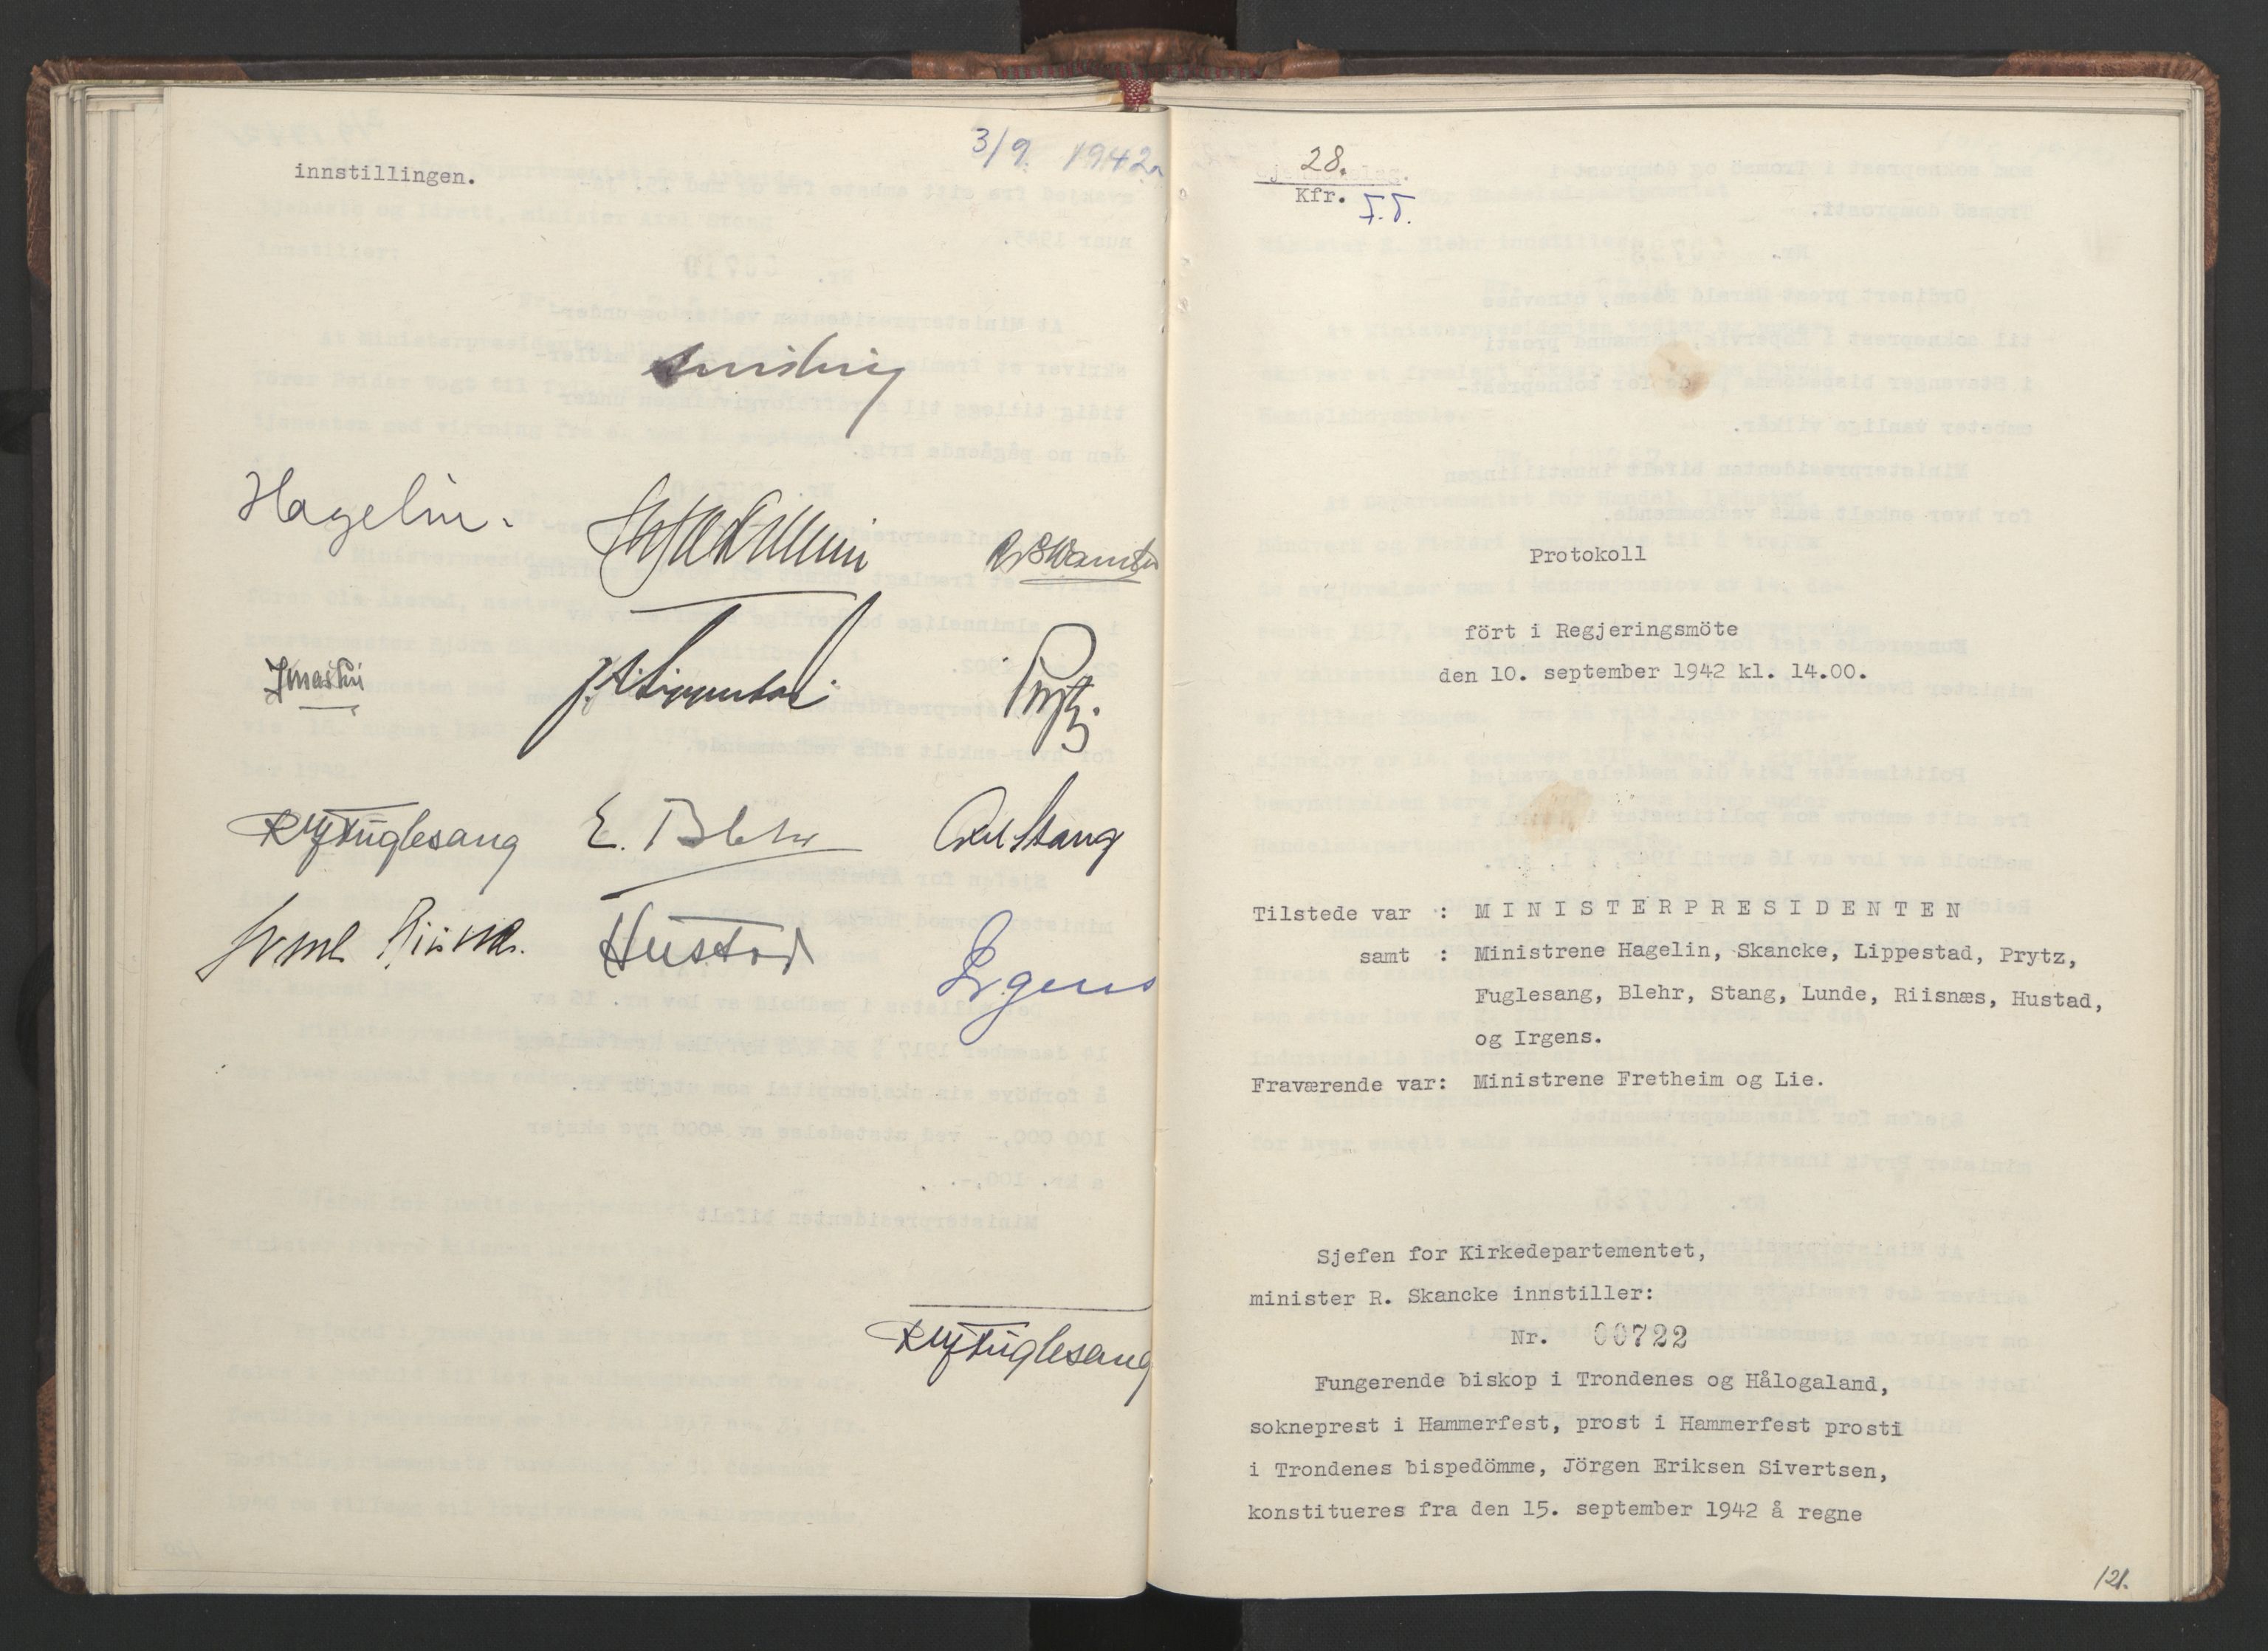 3/9. 1942.
innstillingen.
Hagelin.
R Skancke
Prytz.
RJFuglesang
E. Blehr
Axel Stang
Hustad
Irgens
RJFuglesang
28.
Kfr. T.T.
Protokoll
ført i Regjeringsmöte
den 10. september 1942 kl. 14.00.
Tilstede var : MINISTERPRESIDENTEN
samt : Ministrene Hagelin, Skancke, Lippestad, Prytz,
Fuglesang, Blehr, Stang, Lunde, Riisnæs, Hustad,
og Irgens.
Fraværende var: Ministrene Fretheim og Lie.
Sjefen for Kirkedepartementet,
minister R. Skancke innstiller:
Nr. 00722
Fungerende biskop i Trondenes og Hålogaland,
sokneprest i Hammerfest, prost i Hammerfest prosti
i Trondenes bispedömme, Jörgen Eriksen Sivertsen,
konstitueres fra den 15. september 1942 å regne
121.